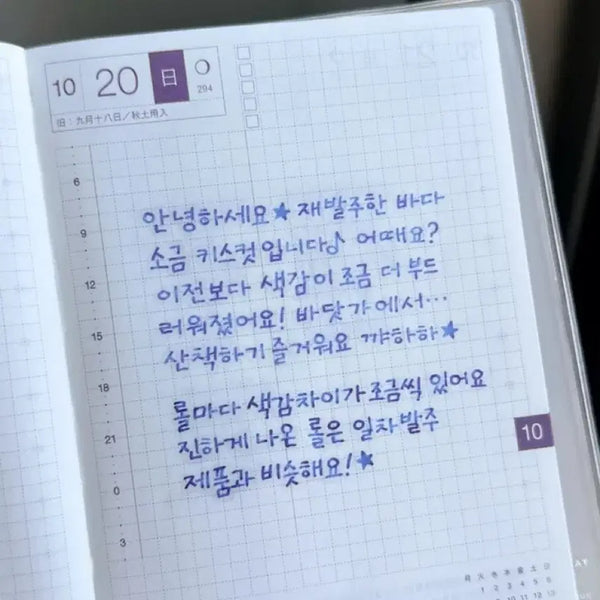 10 20 日
294
旧:九月十八日/秋土用入
6
9
12
15
18
21
0
3
안녕하세요★ 재발주한 바다
소금 키스컷 입니다♪ 어때요?
이전보다 색감이 조금 더 부드
러워졌어요! 바닷가에서...
산책하기 즐거워요 꺄하하★
롤마다 색감차이가 조금씩 있어요
진하게 나온 롤은 일차발주
제품과 비슷해요!★
10
月 火 水 木 金 土 日
1 2 3 4 5 6